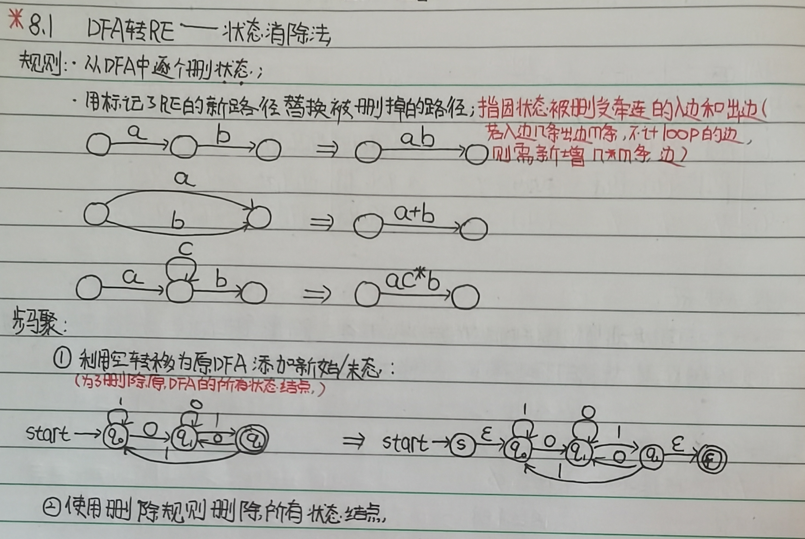 ※8.1 DFA转RE——状态消除法
规则:·从DFA中逐个删状态;
·用标记了RE的新路径替换被删掉的路径;指因状态被删受牵连的入边和出边(
若入边n条出边m条,不计loop的边,
则需新增n*m条边)
a b ⇒ ab
a
b ⇒ a+b
c
a b ⇒ ac*b
步骤:
①利用空转移为原DFA添加新始/末态:
(为了删除原DFA的所有状态结点)
1 0 1 0
start→ q₀ 0 q₁ 1 0 q₁ ⇒ start→ s ε q₀ 0 q₁ 1 0 q₁ ε f
1 1
②使用删除规则删除所有状态结点